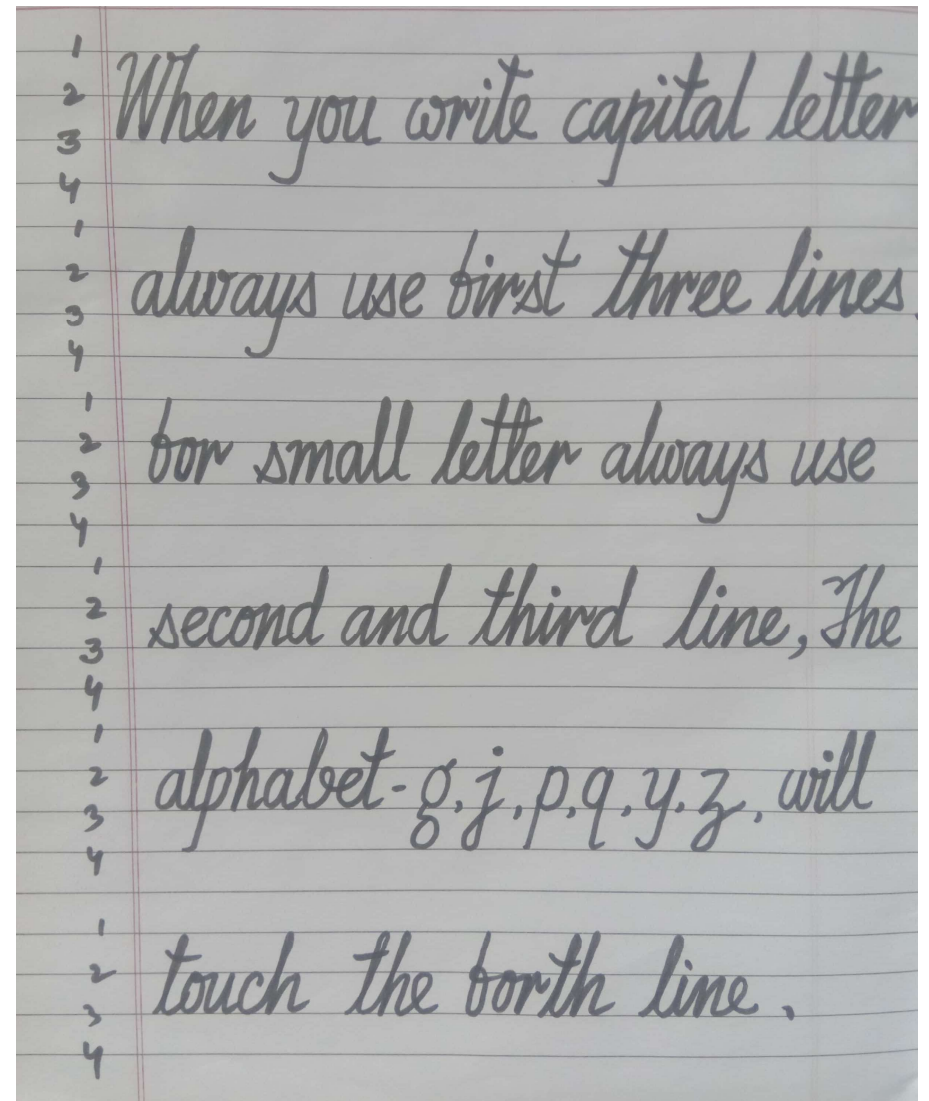 1
2 When you write capital letter
3
4
1
2 always use first three lines.
3
4
1
2 for small letter always use
3
4
1
2 second and third line, The
3
4
1
2 alphabet-g,j,p,q,y,z, will
3
4
1
2 touch the forth line.
3
4